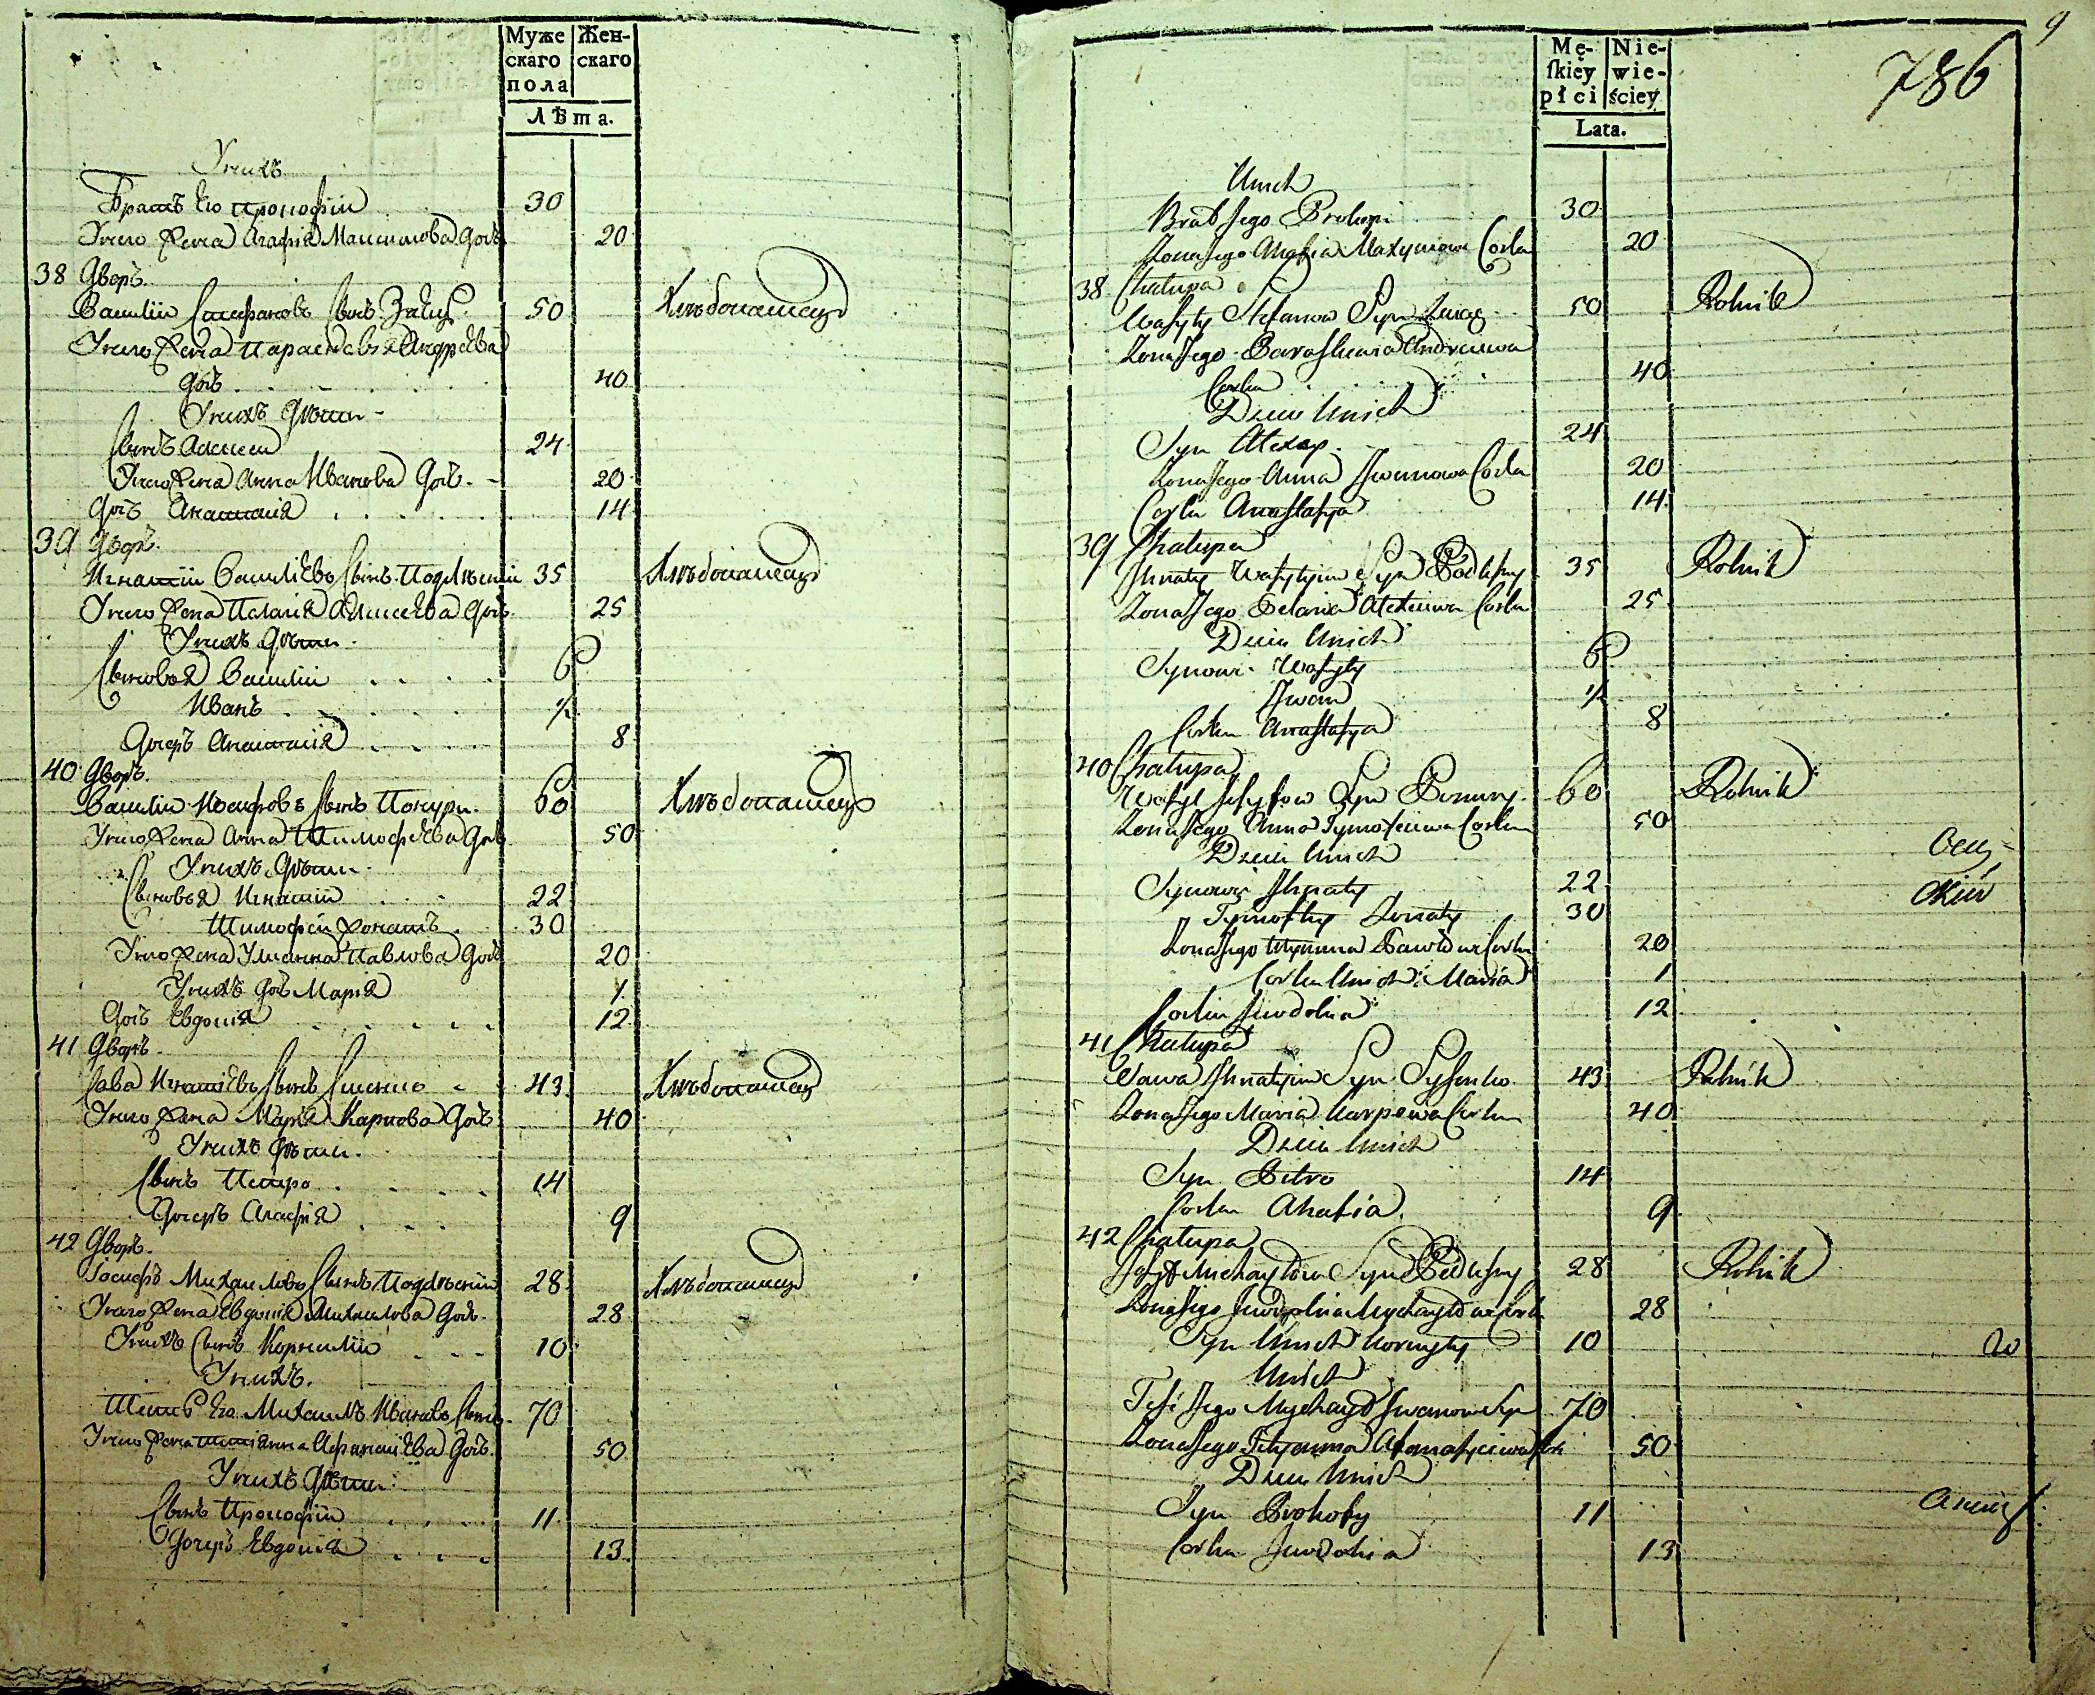 Муже
скаго
пола
Жен-
скаго
Лѣта.
Унихъ
Братъ Его Прокофїи 30
Унего Жена Агафїя Максимова Дочь 20
38 Дворъ.
Василїи Стефановъ Сынъ Заяцъ 50 Хлѣбопашецъ
Унего Жена Параскевїя Андрѣева
Дочь 40
Унихъ Дѣти
Сынъ Алексеи 24
Унего Жена Анна Иванова Дочь 20
Дочь Анастасїя 14
39 Дворъ.
Игнатїи Василїевъ Сынъ Подлѣснїи 35 Хлѣбопашецъ
Унего Жена Пелагїя Алексеева Дочь 25
Унихъ Дѣти
Сыновья Василїи 6
Иванъ ½
Дочеръ Анастасїя 8
40 Дворъ.
Василїи Иосифовъ Сынъ Понуръ 60 Хлѣбопашецъ
Унего Жена Анна Тимофѣева Дочь 50
Унихъ Дѣти
Сыновья Игнатїи 22
Тимофѣи Жонатъ 30
Унего Жена Улианна Павлова Дочь 20
Унихъ Дочь Марїя 1
Дочь Евдокїя 12
41 Дворъ.
Сава Игнатїевъ Сынъ Сисенко 43 Хлѣбопашецъ
Унего Жена Марїя Карпова Дочь 40
Унихъ Дѣти
Сынъ Петро 14
Дочеръ Агафїя 9
42 Дворъ.
Іосифъ Михаиловъ Сынъ Подлѣснїи 28 Хлѣбопашецъ
Унего Жена Евдокїя Михаилова Дочь 28
Унихъ Сынъ Корнилїи 10
Унихъ.
Тесть Его Михаилъ Ивановъ Сынъ 70
Унего Жена Тетїянна Афанасїева Дочь 50
Унихъ Дѣти
Сынъ Прокофїи 11
Дочеръ Евдокїя 13
9
786
Mę-
ſkiey
płci
Nie-
wie-
ściey
Lata.
Unich
Brat Jego Prokopi 30
Zona Jego Ahafia Maxymowa Corka 20
38 Chałupa
Wasyly Stefanow Syn Zaiąc 50 Rolnik
Zona Jego Paraskewia Andreiewa
Corka 40
Dzieci Unich
Syn Alexey 24
Zona Jego Anna Jwanowa Corka 20
Corka Anastasya 14
39 Chałupa
Jhnaty Wasylyiow Syn Podlesny 35 Rolnik
Zona Jego Pelaria Alexeiewa Corka 25
Dzieci Unich
Synowi Wasyly 6
Jwan ½
Corka Anastasya 8
40 Chałupa
Wasyl Josyfow Syn Ponury 60 Rolnik
Zona Jego Anna Tymofeiiewa Corka 50
Dzieci Unich
Synowie Jhnaty 22
Tymofiey Zonaty 30
Zona Jego Ulyanna Pawłowa Corka 20
Corka Unich Maria 1
Corka Jewdokia 12
41 Chałupa
Sawa Jhnatyiow Syn Sysenko 43 Rolnik
Zona Jego Maria Karpowa Corka 40
Dzieci Unich
Syn Petro 14
Corka Ahafia 9
42 Chałupa
Josyf Michayłow Syn Podlesny 28 Rolnik
Zona Jego Jewdokia Mychayłowa Corka 28
Syn Unich Kornyły 10
Unich
Teść Jego Mychayło Jwanow Syn 70
Zona Jego Tetyanna Afanasyiewa Cor 50
Dzieci Unich
Syn Prokofy 11
Corka Jewdokia 13